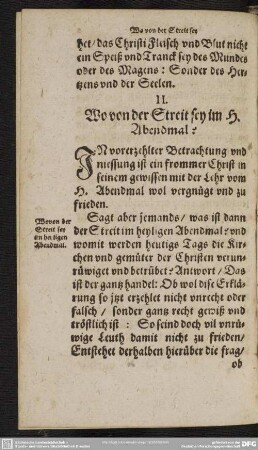 Wa von der Streit sey
het/ das Christi Fleisch vnd Blut nicht
ein Speiß vnd Tranck sey des Mundes
oder des Magens: Sonder des Her-
tzens vnd der Seelen.
II.
Wo von der Streit sey im H.
Abendmal?
IN vorerzehlter Betrachtung vnd
niessung ist ein frommer Christ in
seinem gewissen mit der Lehr vom
H. Abendmal wol vergnügt vnd zu
frieden.
Wovon der
Streit sey
im heiligen
Abendmal.
Sagt aber jemands/ was ist dann
der Streit im heyligen Abendmal? vnd
womit werden heutigs Tags die Kir-
chen vnd gemüter der Christen verun-
rüwiget vnd betrübet? Antwort/ Das
ist der gantz handel: Ob wol dise Erklä-
rung so jtzt erzehlet nicht vnrecht oder
falsch/ sonder gantz recht gewiß vnd
tröstlich ist: So seind doch vil vnrü-
wige Leuth damit nicht zu frieden/
Entstehet derhalben hierüber die frag/
ob